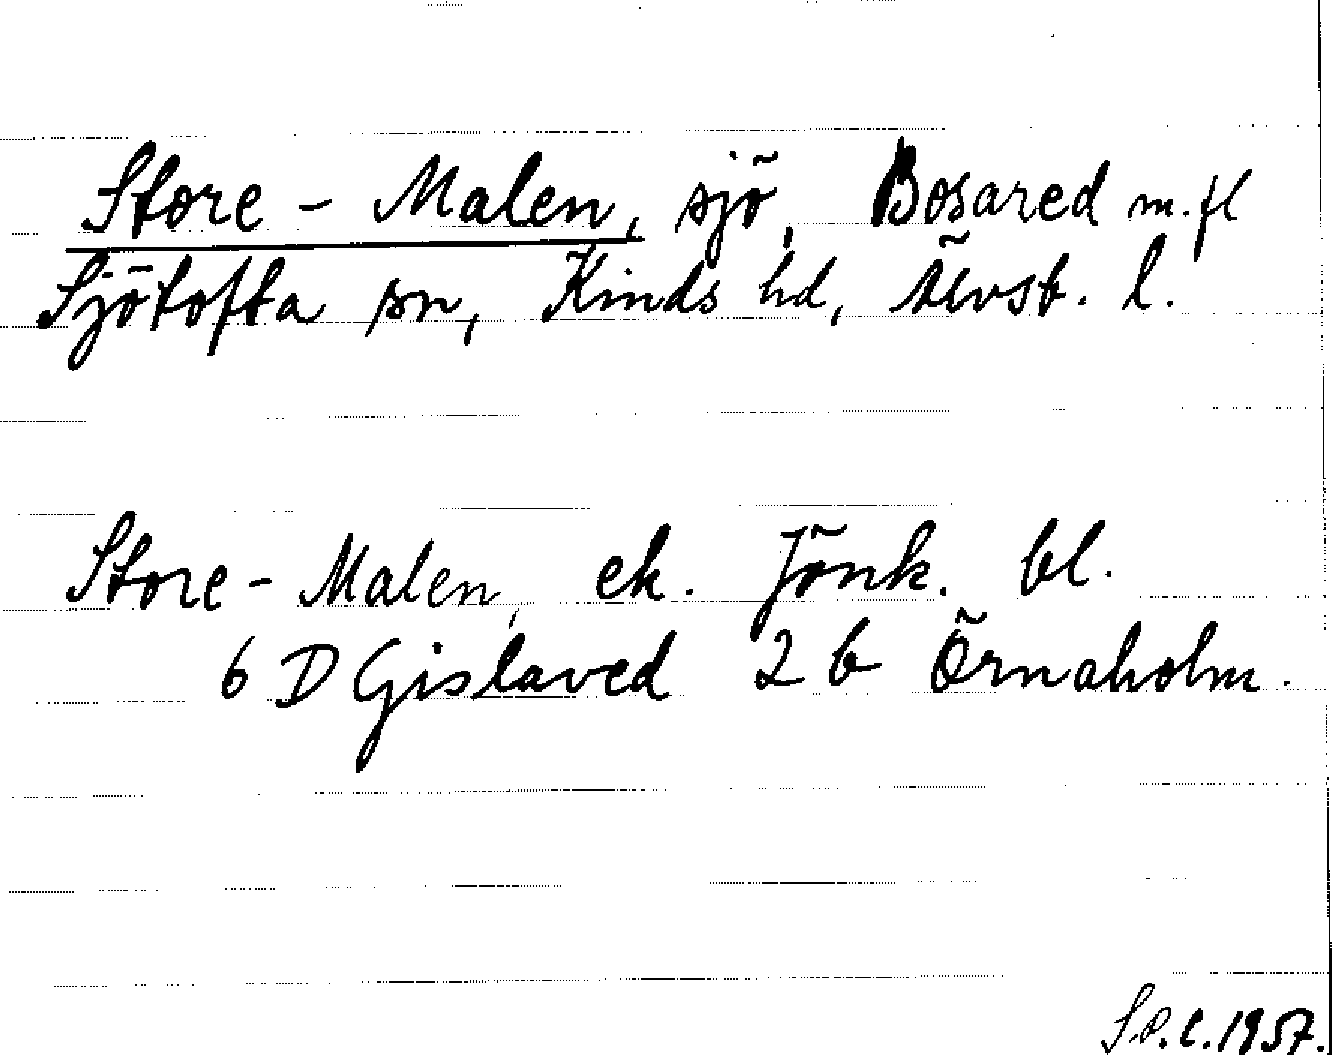 Store - Malen, sjö, Bosared m.fl
Sjötofta sn, Kinds hd, Älvsb. l.
Store - Malen, ek. Jönk. bl.
6 D Gislaved 2 b Örnaholm.
S.P.L. 1957.